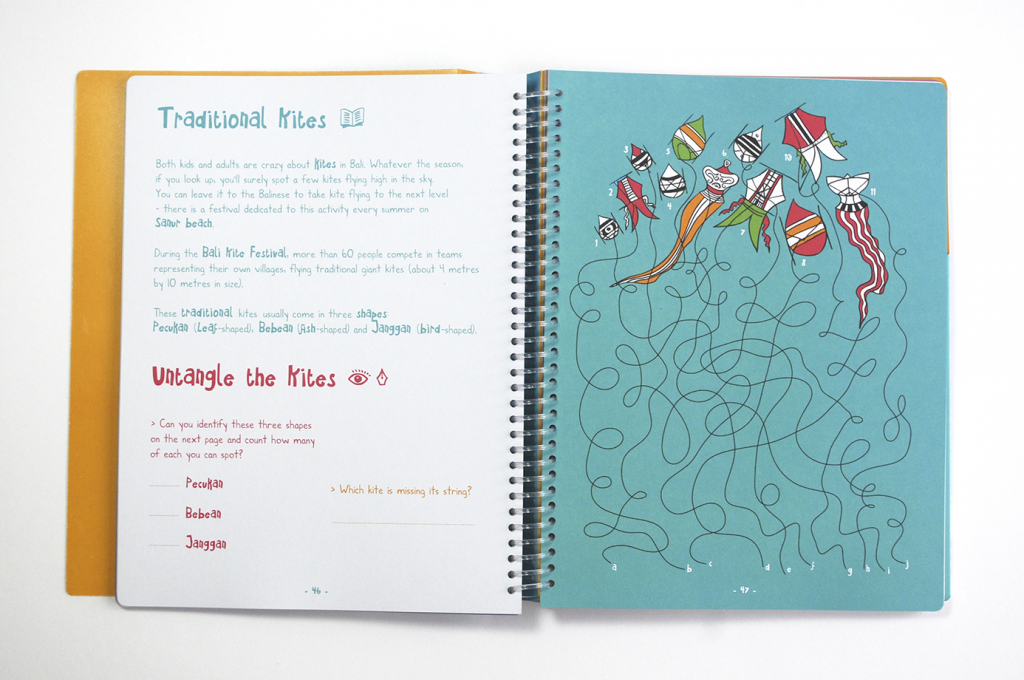 Traditional Kites
Both kids and adults are crazy about kites in Bali. Whatever the season,
if you look up, you'll surely spot a few kites flying high in the sky.
You can leave it to the Balinese to take kite flying to the next level
- there is a festival dedicated to this activity every summer on
Sanur beach.
During the Bali Kite Festival, more than 60 people compete in teams
representing their own villages, flying traditional giant kites (about 4 metres
by 10 metres in size).
These traditional kites usually come in three shapes
Pecukan (leaf-shaped), Bebean (fish-shaped) and Janggan (bird-shaped).
Untangle the Kites
> Can you identify these three shapes
on the next page and count how many
of each you can spot?
Pecukan
Bebean
Janggan
> Which kite is missing its string?
- 46 -
3
5
6
10
2
4
11
1
7
8
a b c d e f g h i j
- 47 -